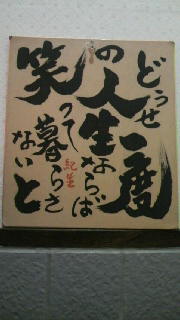 どうせ一度
の人生ならば
笑って暮らさ
ないと
紀生